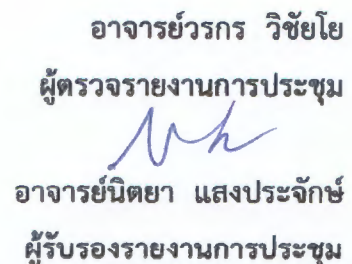 อาจารย์วรกร วิชัยโย
ผู้ตรวจรายงานการประชุม
อาจารย์นิตยา แสงประจักษ์
ผู้รับรองรายงานการประชุม